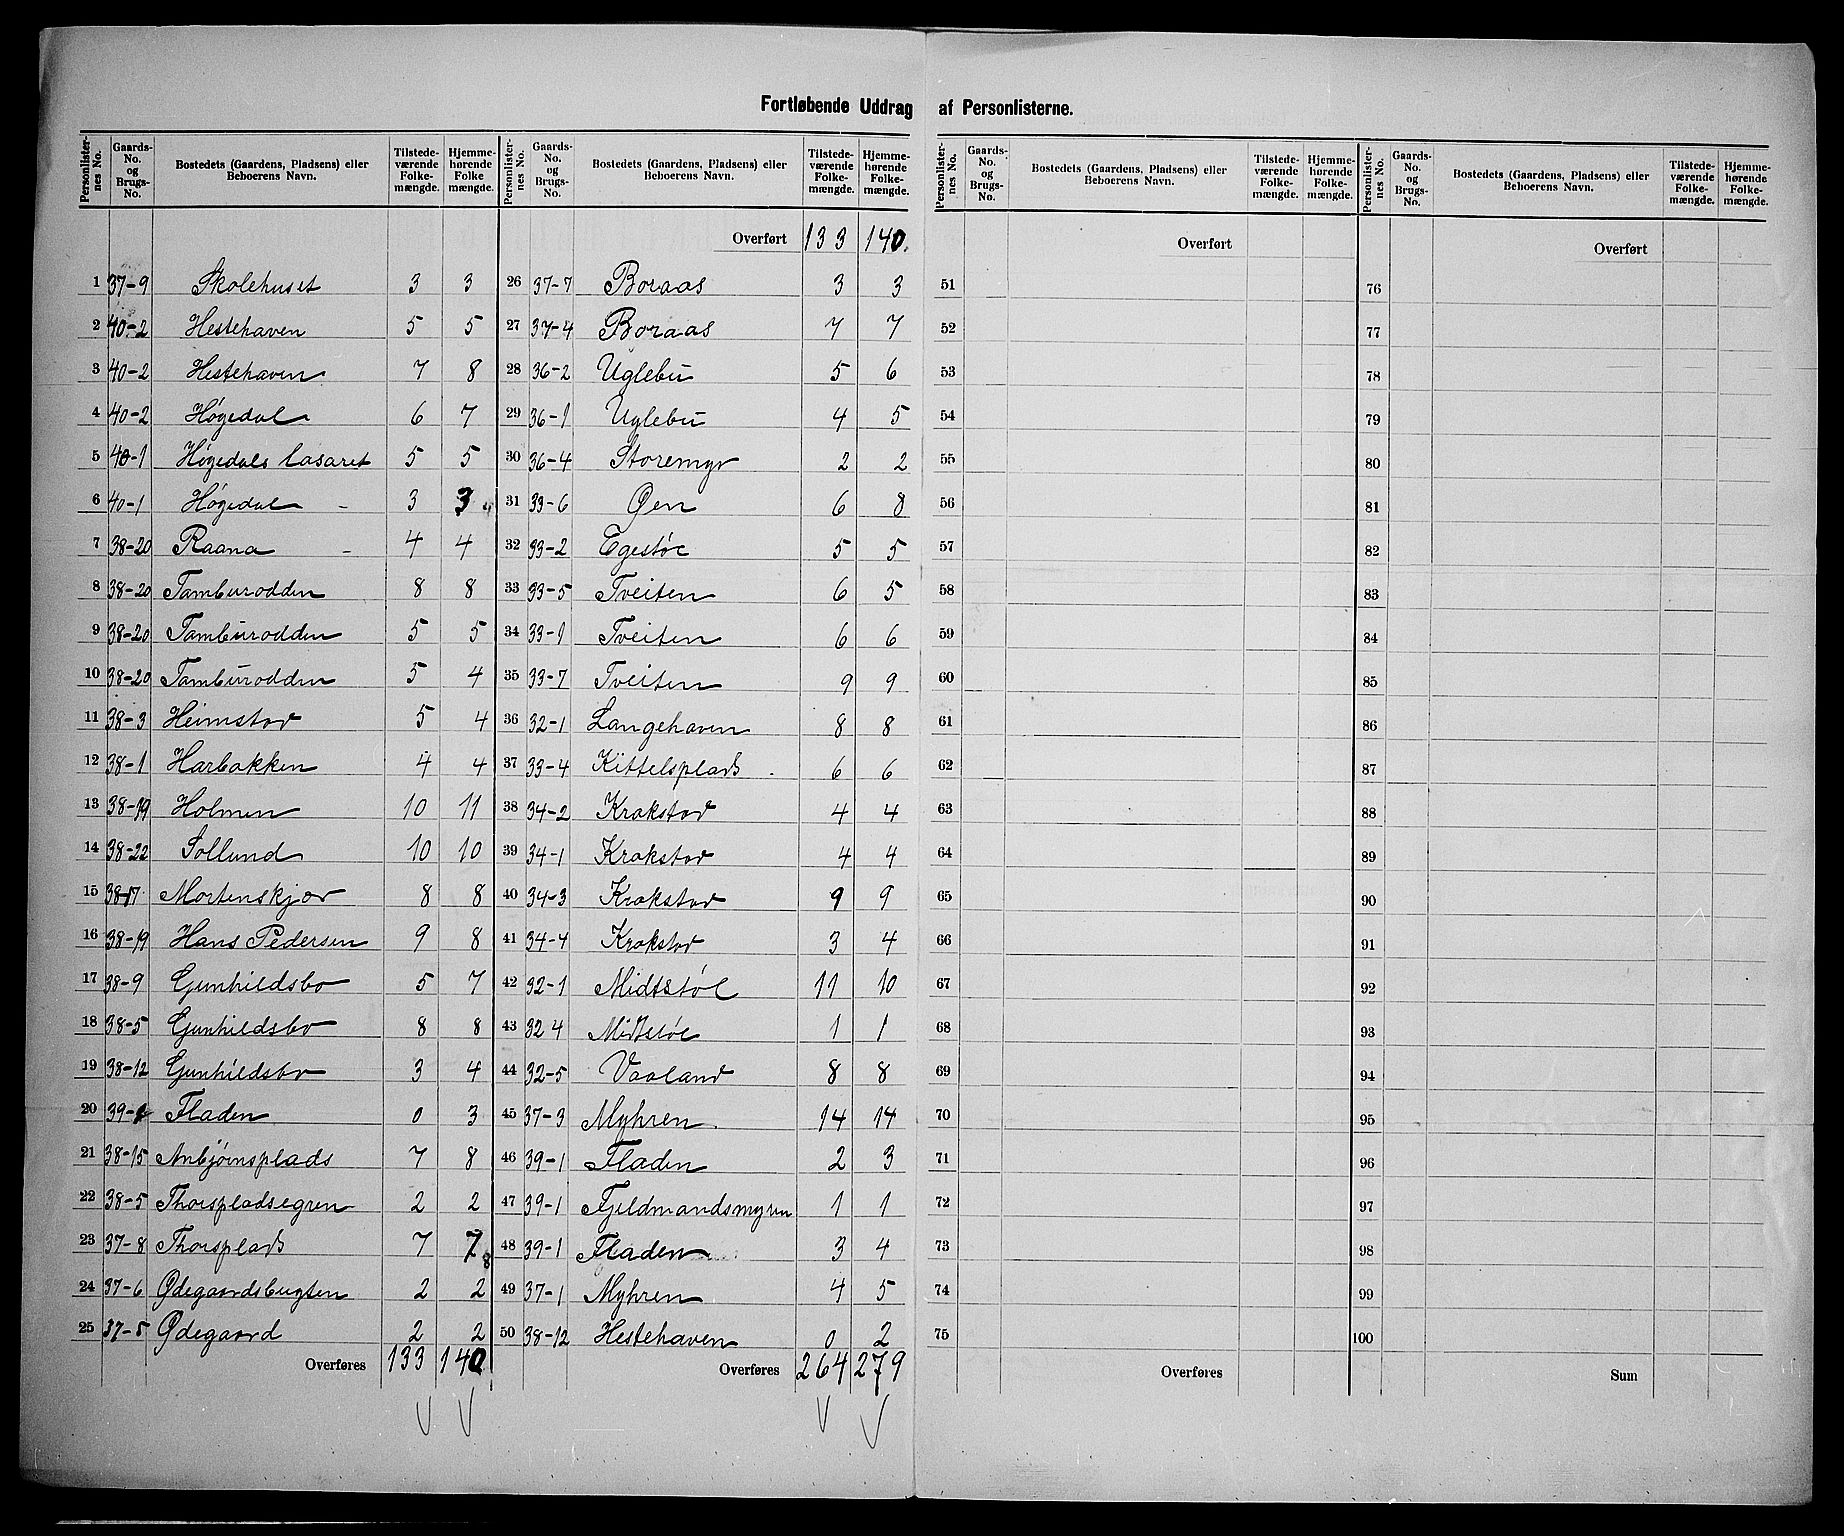 Fortløbende Uddrag af Personlisterne.
Personlister- nes No. | Gaards-No. og Brugs-No. | Bostedets (Gaardens, Pladsens) eller Beboerens Navn. | Tilstede-værende Folke-mængde. | Hjemme-hørende Folke mængde.
1 37-9 Skolehuset 3 3
2 40-2 Hestehaven 5 5
3 40-2 Hestehaven 7 8
4 40-2 Høgedal 6 7
5 40-1 Høgedals lasaret 5 5
6 40-1 Høgedal 3 3
7 38-20 Raana 4 4
8 38-20 Tamburodden 8 8
9 38-20 Tamburodden 5 5
10 38-20 Tamburodden 5 4
11 38-3 Heimstad 5 4
12 38-1 Harbakken 4 4
13 38-19 Holmen 10 11
14 38-22 Sollund 10 10
15 38-17 Mortenskjær 8 8
16 38-19 Hans Pedersen 9 8
17 38-9 Gunhildsbo 5 7
18 38-5 Gunhildsbo 8 8
19 38-12 Gunhildsbo 3 4
20 39-1 Fladen 0 3
21 38-15 Anbjørnsplads 7 8
22 38-5 Thorspladsegren 2 2
23 37-8 Thorsplads 7 7 8
24 37-6 Ødegaardsbugten 2 2
25 37-5 Ødegaard 2 2
Overføres 133 140
Personlister- nes No. | Gaards-No. og Brugs-No. | Bostedets (Gaardens, Pladsens) eller Beboerens Navn. | Tilstede-værende Folke-mængde. | Hjemme-hørende Folke-mængde.
Overført 133 140.
26 37-7 Boraas 3 3
27 37-4 Boraas 7 7
28 36-2 Uglebu 5 6
29 36-1 Uglebu 4 5
30 36-4 Storemyr 2 2
31 33-6 Øen 6 8
32 33-2 Egestøl 5 5
33 33-5 Tveiten 6 5
34 33-1 Tveiten 6 6
35 33-7 Tveiten 9 9
36 32-1 Langehaven 8 8
37 33-4 Kittelsplads 6 6
38 34-2 Krokstad 4 4
39 34-1 Krokstad 4 4
40 34-3 Krokstad 9 9
41 34-4 Krokstad 3 4
42 32-1 Midtstøl 11 10
43 32 4 Midtstøl 1 1
44 32-5 Vaaland 8 8
45 37-3 Myhren 14 14
46 39-1 Fladen 2 3
47 39-1 Fjeldmandsmyren 1 1
48 39-1 Fladen 3 4
49 37-1 Myhren 4 5
50 38-12 Hestehaven 0 2
Overføres 264 279
Personlister- nes No. | Gaards-No. og Brugs-No. | Bostedets (Gaardens, Pladsens) eller Beboerens Navn. | Tilstede-værende Folke-mængde. | Hjemme-hørende Folke-mængde.
Overført
51
52
53
54
55
56
57
58
59
60
61
62
63
64
65
66
67
68
69
70
71
72
73
74
75
Overføres
Personlister- nes No. | Gaards-No. og Brugs-No. | Bostedets (Gaardens, Pladsens) eller Beboerens Navn. | Tilstede-værende Folke-mængde. | Hjemme-hørende Folke-mængde.
Overført
76
77
78
79
80
81
82
83
84
85
86
87
88
89
90
91
92
93
94
95
96
97
98
99
100
Sum